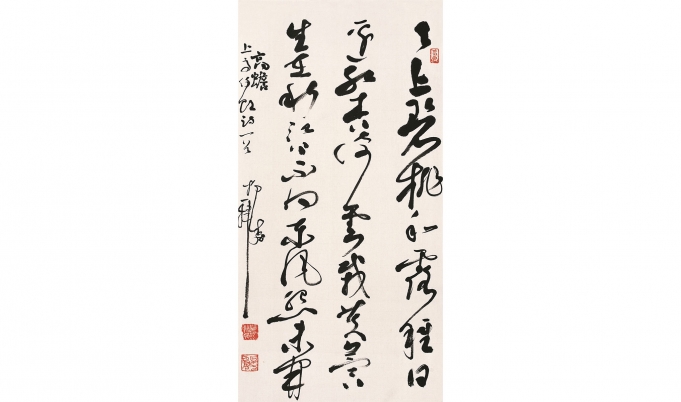 天上碧桃和露種日
邊紅杏倚雲栽芙蓉
生在秋江上不向東風怨未開
高蟾
上高侍郎詩一首